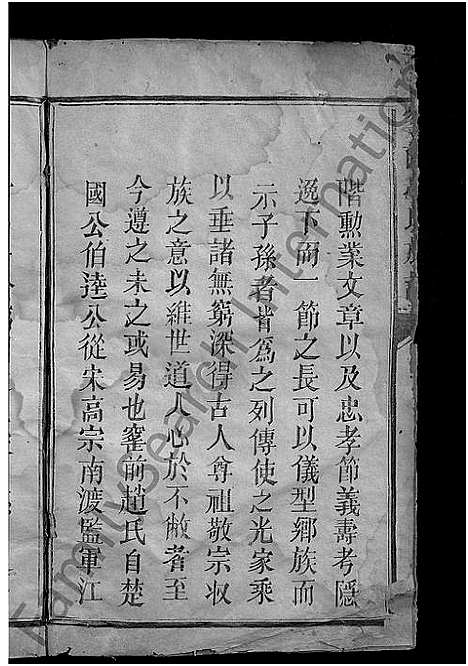 階勲業文章以及忠孝節義壽考隱
逸下而一節之長可以儀型鄉族而
示子孫者皆為之列傳使之光家乘
以垂諸無窮深得古人尊祖敬宗収
族之意以維世道人心於不敝者至
今遵之未之或易也窰前趙氏自楚
國公伯逵公從宋高宗南渡監軍江
FamilySearch International